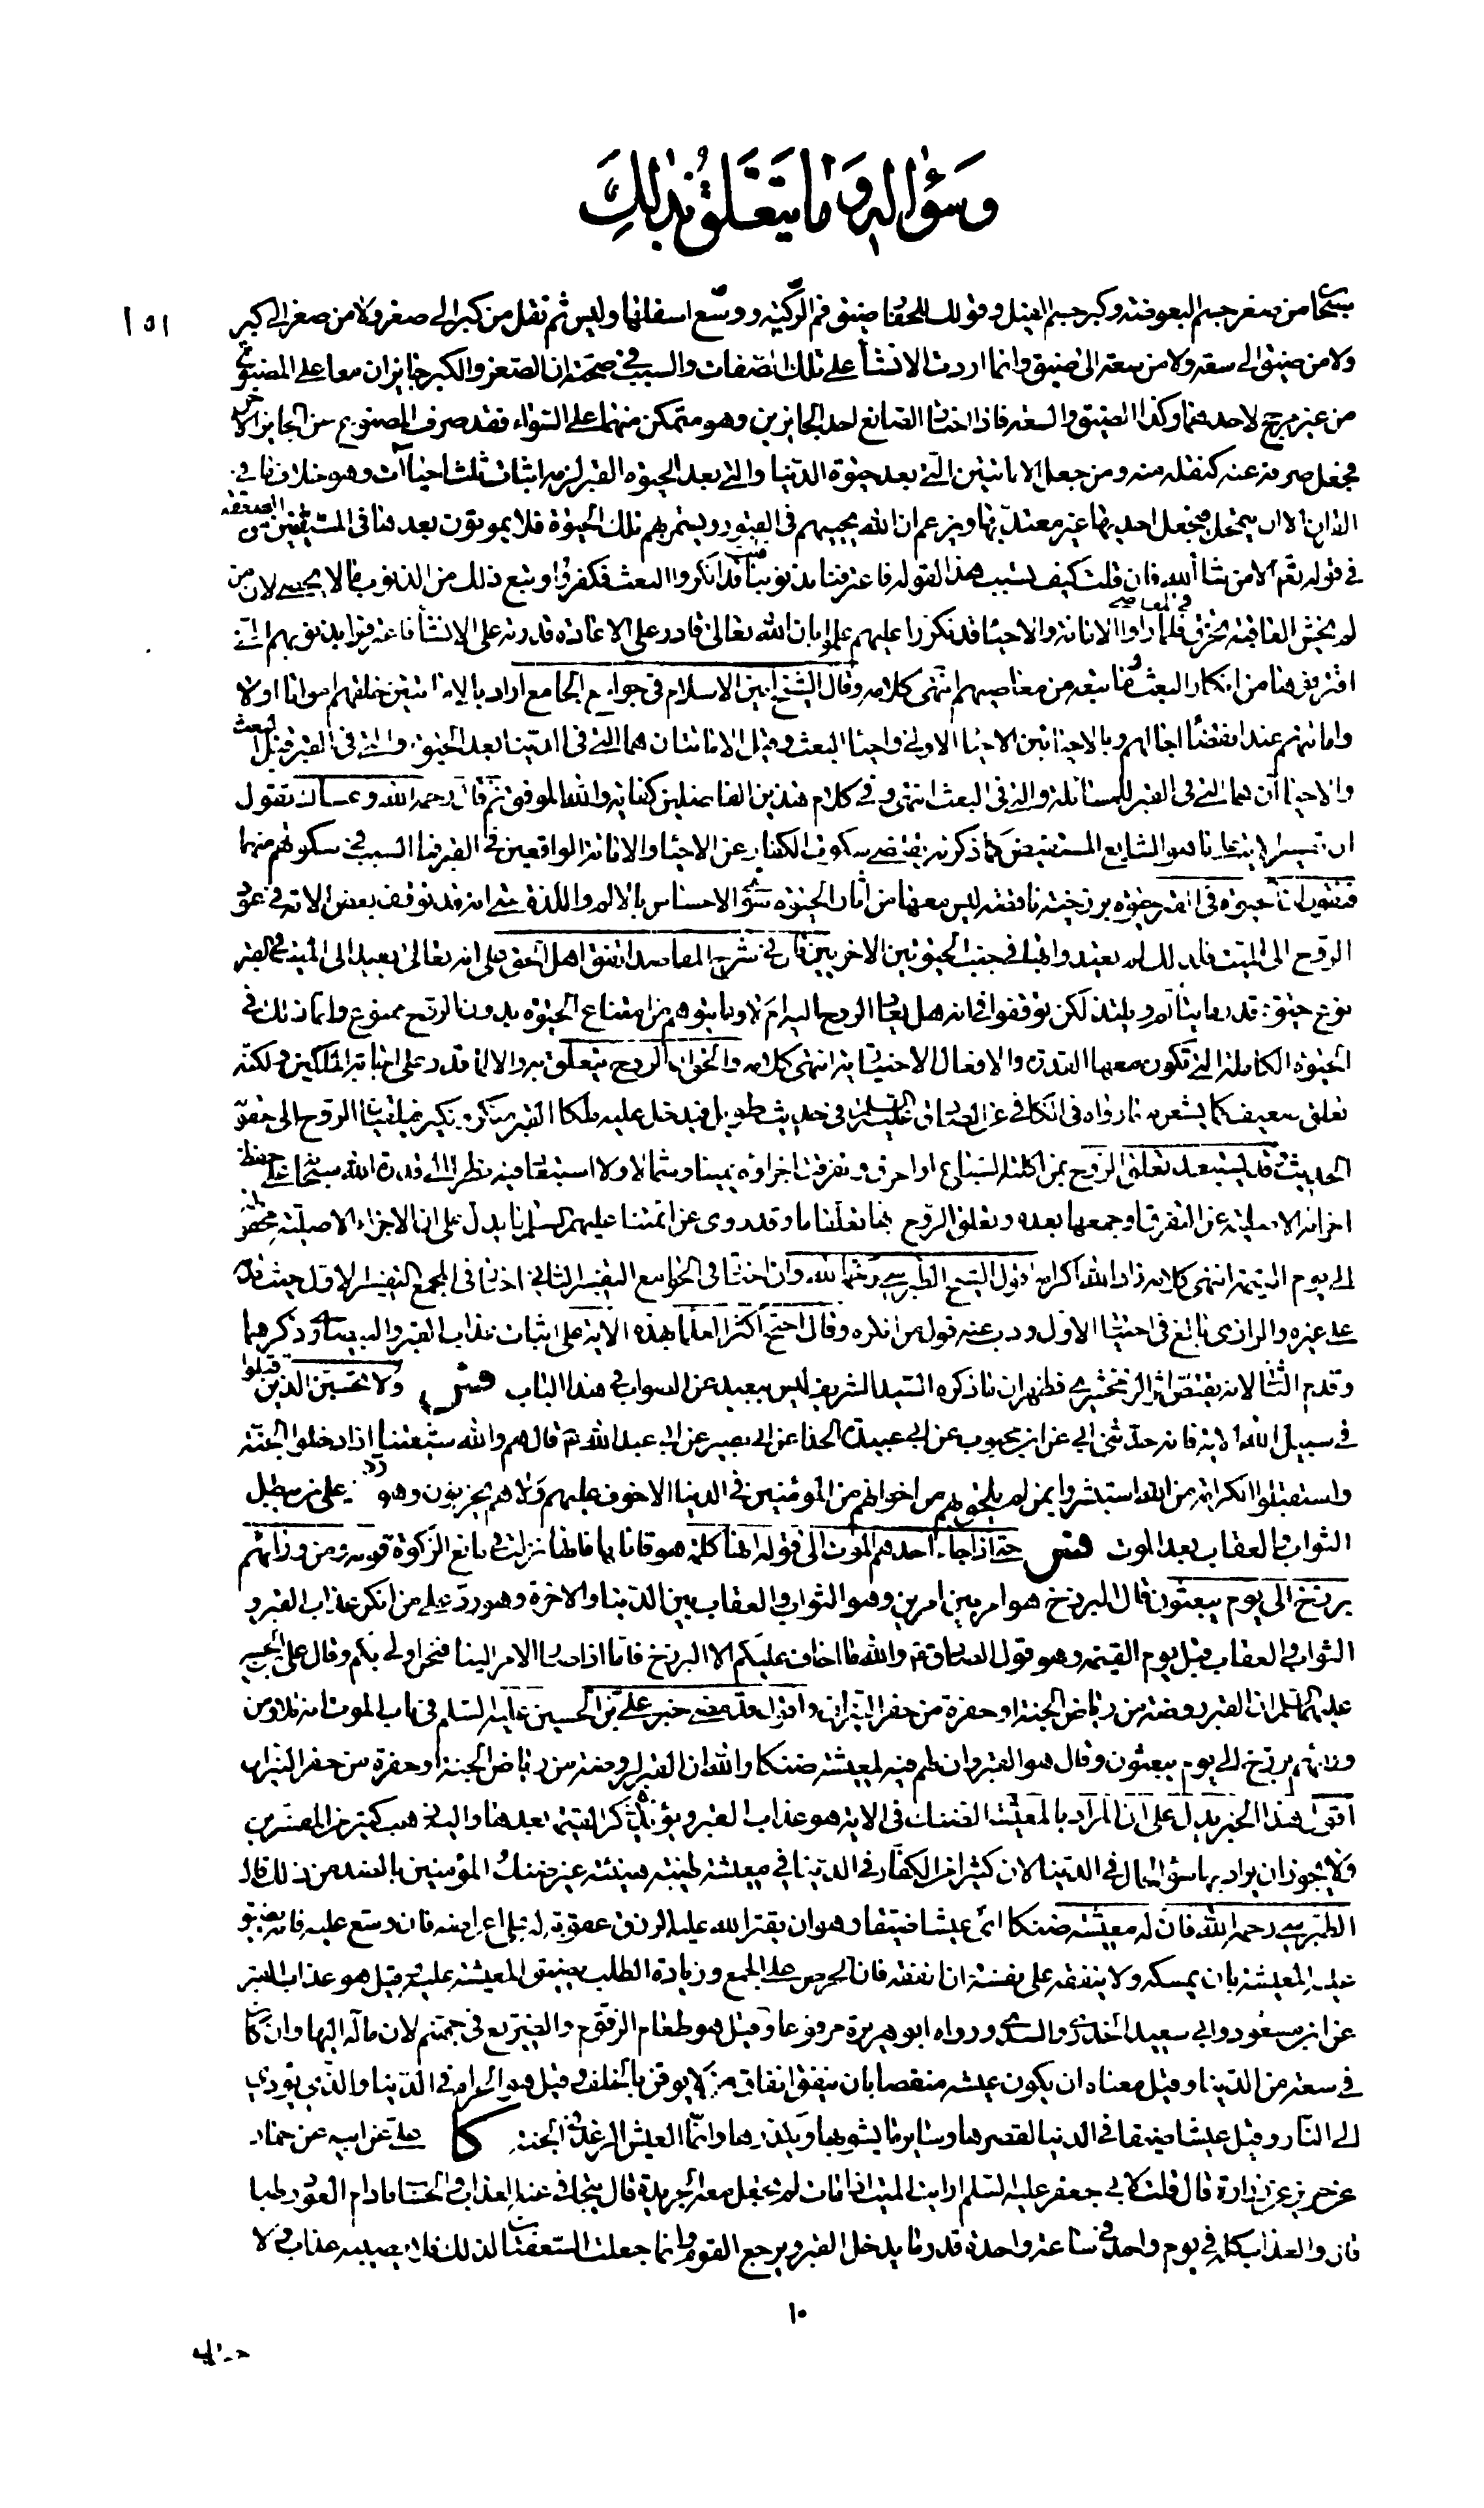 وسؤاله وما يتعلق بذلك
١٥١
سبحان من صغر جسم البعوضة وكبر جسم الفيل وقولك للحفار ضيق فم الركية ووسع اسفلها وليس ثم نقل من كبر الى صغر ولا من صغر الى كبر
ولا من ضيق الى سعة ولا من سعة الى ضيق وانما اردت الانشاء على تلك الصفات والسبب في صحته ان الصغر والكبر جايزان معا على المصنوع
من غير مرجح لاحدهما وكذا الضيق والسعة فاذا اختار الصانع احد الجايزين وهو متمكن منهما على السواء فقد صرف المصنوع عن الجايز الاخر
فجعل صرفه عنه كنقله منه ومن جعل الاماتتين التي بعد حيوة الدنيا والتي بعد الحيوة القبر لزمه اثبات ثلث احياآت وهو خلاف ما في
القران الا ان يتمحل فيجعل احديها غير معتد بها ويزعم ان الله يحييهم في القبور ويستمر بهم تلك الحيوة فلا يموتون بعدها في المستثنين من الصعقة
في قوله تعم الا من شاء الله فان قلت كيف تسبب هذا لقوله فاعترفنا بذنوبنا قلت قد انكروا البعث فكفروا وتبع ذلك من الذنوب ما لا يحصى لان من
لم يخش العاقبة تخرق في المعاصي فلما راوا الاماتة والاحياء قد تكررا عليهم علموا بان الله تعالى قادر على الاعادة قدرته على الانشاء فاعترفوا بذنوبهم التي
اقترفوها من انكار البعث وما تبعه من معاصيهم انتهى كلامه وقال الشيخ امين الاسلام في جوامع الجامع اراد بالاماتتين خلقهم امواتا اولا
واماتتهم عند انقضاء اجالهم وبالاحيائين الاحياء الاولى واحياء البعث وقيل الاماتتان هما التي في الدنيا بعد الحيوة والتي في القبر قبل البعث
والاحياآن هما التي في القبر للمسائلة والتي في البعث انتهى وفي كلام هذين الفاضلين كفاية والله الموفق ثم قال رحمه الله وعساك تقول
ان تفسير الاية على ما هو الشايع المستفيض كما ذكرته يقتضى سكوت الكفار عن الاحياء والاماتة الواقعين في القبر فما السبب في سكوتهم عنهما
فنقول ان الحيوة في القبر حيوة برزخية ناقصة ليس معها من اثار الحيوة سوى الاحساس بالالم واللذة حتى انه قد توقف بعض الامة في عود
الروح الى الميت فلذلك لم يعتد وابها في جنب الحيوتين الاخريين قال في شرح المقاصد اتفق اهل الحق على انه تعالى يعيد الى الميت في القبر
نوع حيوة قدر ما يتألم ويلتذ لكن توقفوا في انه هل يعاد الروح اليه ام لا وما يتوهم من امتناع الحيوة بدون الروح ممنوع وانما ذلك في
الحيوة الكاملة التي تكون معها القدرة والافعال الاختيارية انتهى كلامه والحق ان الروح يتعلق به والا لما قدر على اجابة الملكين ولكنه
تعلق ضعيف كما يشعر به ما رواه في الكافي عن الصادق عليه السلم في حديث طويل فيدخل عليه ملكا القبر منكر ونكير فيلقيان الروح الى حقويه
الحديث وقد يستبعد تعلق الروح بمن اكلته السباع او احرق وتفرقت اجزاؤه يمينا وشمالا ولا استبعاد فيه نظرا الى قدرة الله سبحانه على حفظ
اجزائه الاصلية عن التفرق او جمعها بعده وتعلق الروح بها تعلقا ما وقد روى عن ائمتنا عليهم السلم ما يدل على ان الاجزاء الاصلية محفوظة
الى يوم القيمة انتهى كلامه زاد الله اكرامه اقول الشيخ الطبرسي رحمه الله وان اختار في الجوامع التفسير الثاني اختار في المجمع التفسير الاول حيث قدمه
على غيره والرازى بالغ في اختيار الاول وذب عنه قول من انكره وقال احتج اكثر العلماء بهذه الاية على اثبات عذاب القبر والبيضاوى ذكرهما
وقدم الثاني لانه يقتفى اثر الزمخشرى فظهر ان ما ذكره السيد الشريف ليس ببعيد عن الصواب في هذا الباب فس ولا تحسبن الذين قتلوا
في سبيل الله الاية فانه حدثني ابي عن ابن محبوب عن ابي عبيدة الحذاء عن ابي بصير عن ابي عبد الله ع قال هم والله شيعتنا اذا دخلوا الجنة
واستقبلوا الكرامة من الله استبشروا بمن لم يلحق بهم من اخوانهم من المؤمنين في الدنيا الا خوف عليهم ولا هم يحزنون وهو رد على من يبطل
الثواب والعقاب بعد الموت فس حتى اذا جاء احدهم الموت الى قوله انها كلمة هو قائلها فانها نزلت في مانع الزكوة قوله ومن ورائهم
برزخ الى يوم يبعثون قال البرزخ هو امر بين امرين وهو الثواب والعقاب بين الدنيا والاخرة وهو رد على من انكر عذاب القبر و
الثواب والعقاب قبل يوم القيمة وهو قول الصادق ع والله ما اخاف عليكم الا البرزخ فاما اذا صار الامر الينا فنحن اولى بكم وقال علي بن الحسين
عليهما السلم ان القبر روضة من رياض الجنة او حفرة من حفر النيران واقول قد مضى خبر علي بن الحسين عليه السلم في باب الموت انه تلا ومن
ورائهم برزخ الى يوم يبعثون وقال هو القبر وان لهم فيه لمعيشة ضنكا والله ان القبر لروضة من رياض الجنة او حفرة من حفر النيران
اقول هذا الخبر يدل على ان المراد بالمعيشة الضنك في الاية هو عذاب القبر ويؤيده ذكر القيمة بعدها واليه ذهب كثير من المفسرين
ولا يجوز ان يراد بها سوء الحال في الدنيا لان كثيرا من الكفار في الدنيا في معيشة طيبة هنيئة غير ضنك والمؤمنين بالضد من ذلك قال
الطبرسي رحمه الله فان له معيشة ضنكا اى عيشا ضيقا وهو ان يقتر الله عليه الرزق عقوبة له على اعراضه فان وسع عليه فانه يضيق
عليه المعيشة بان يمسكه ولا ينفقه على نفسه وان انفقه فان الحرص على الجمع وزيادة الطلب يضيق المعيشة عليه وقيل هو عذاب القبر
عن ابن مسعود وابي سعيد الخدرى والسدى ورواه ابو هريرة مرفوعا وقيل هو طعام الزقوم والضريع في جهنم لان ماله اليها وان كان
في سعة من الدنيا وقيل معناه ان يكون عيشه منغصا بان ينفق انفاق من لا يوقن بالخلف وقيل هو الحرام في الدنيا والذي يؤدي
الى النار وقيل عيشا ضيقا في الدنيا لقصرها وسائر ما يشوبها ويكدرها وانما العيش الرغد في الجنة كا على عن ابيه عن حماد
عن حريز عن زرارة قال قلت لابي جعفر عليه السلم ارايت الميت اذا مات لم تجعل معه الجريدة قال يتجافى عنه العذاب والحساب ما دام العود رطبا
قال والعذاب كله في يوم واحد في ساعة واحدة قدر ما يدخل القبر ويرجع القوم وانما جعلت السعفتان لذلك فلا يصيبه عذاب ولا
١٠